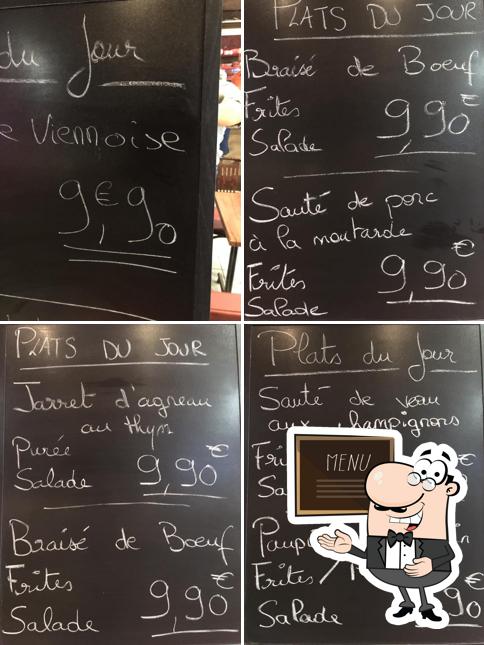 du Jour
e Viennoise
9€,90
PLATS DU JOUR
Braisé de Boeuf
Frites
Salade
9,90€
Sauté de porc
à la moutarde
Frites
Salade
9,90€
PLATS DU JOUR
Jarret d'agneau
au thym
Purée
Salade
9,90€
Braisé de Boeuf
Frites
Salade
9,90€
Plats du Jour
Sauté de veau
aux hampignons
Fri
Sa
€
MENU
Paup
in
Frites
Salade
90€